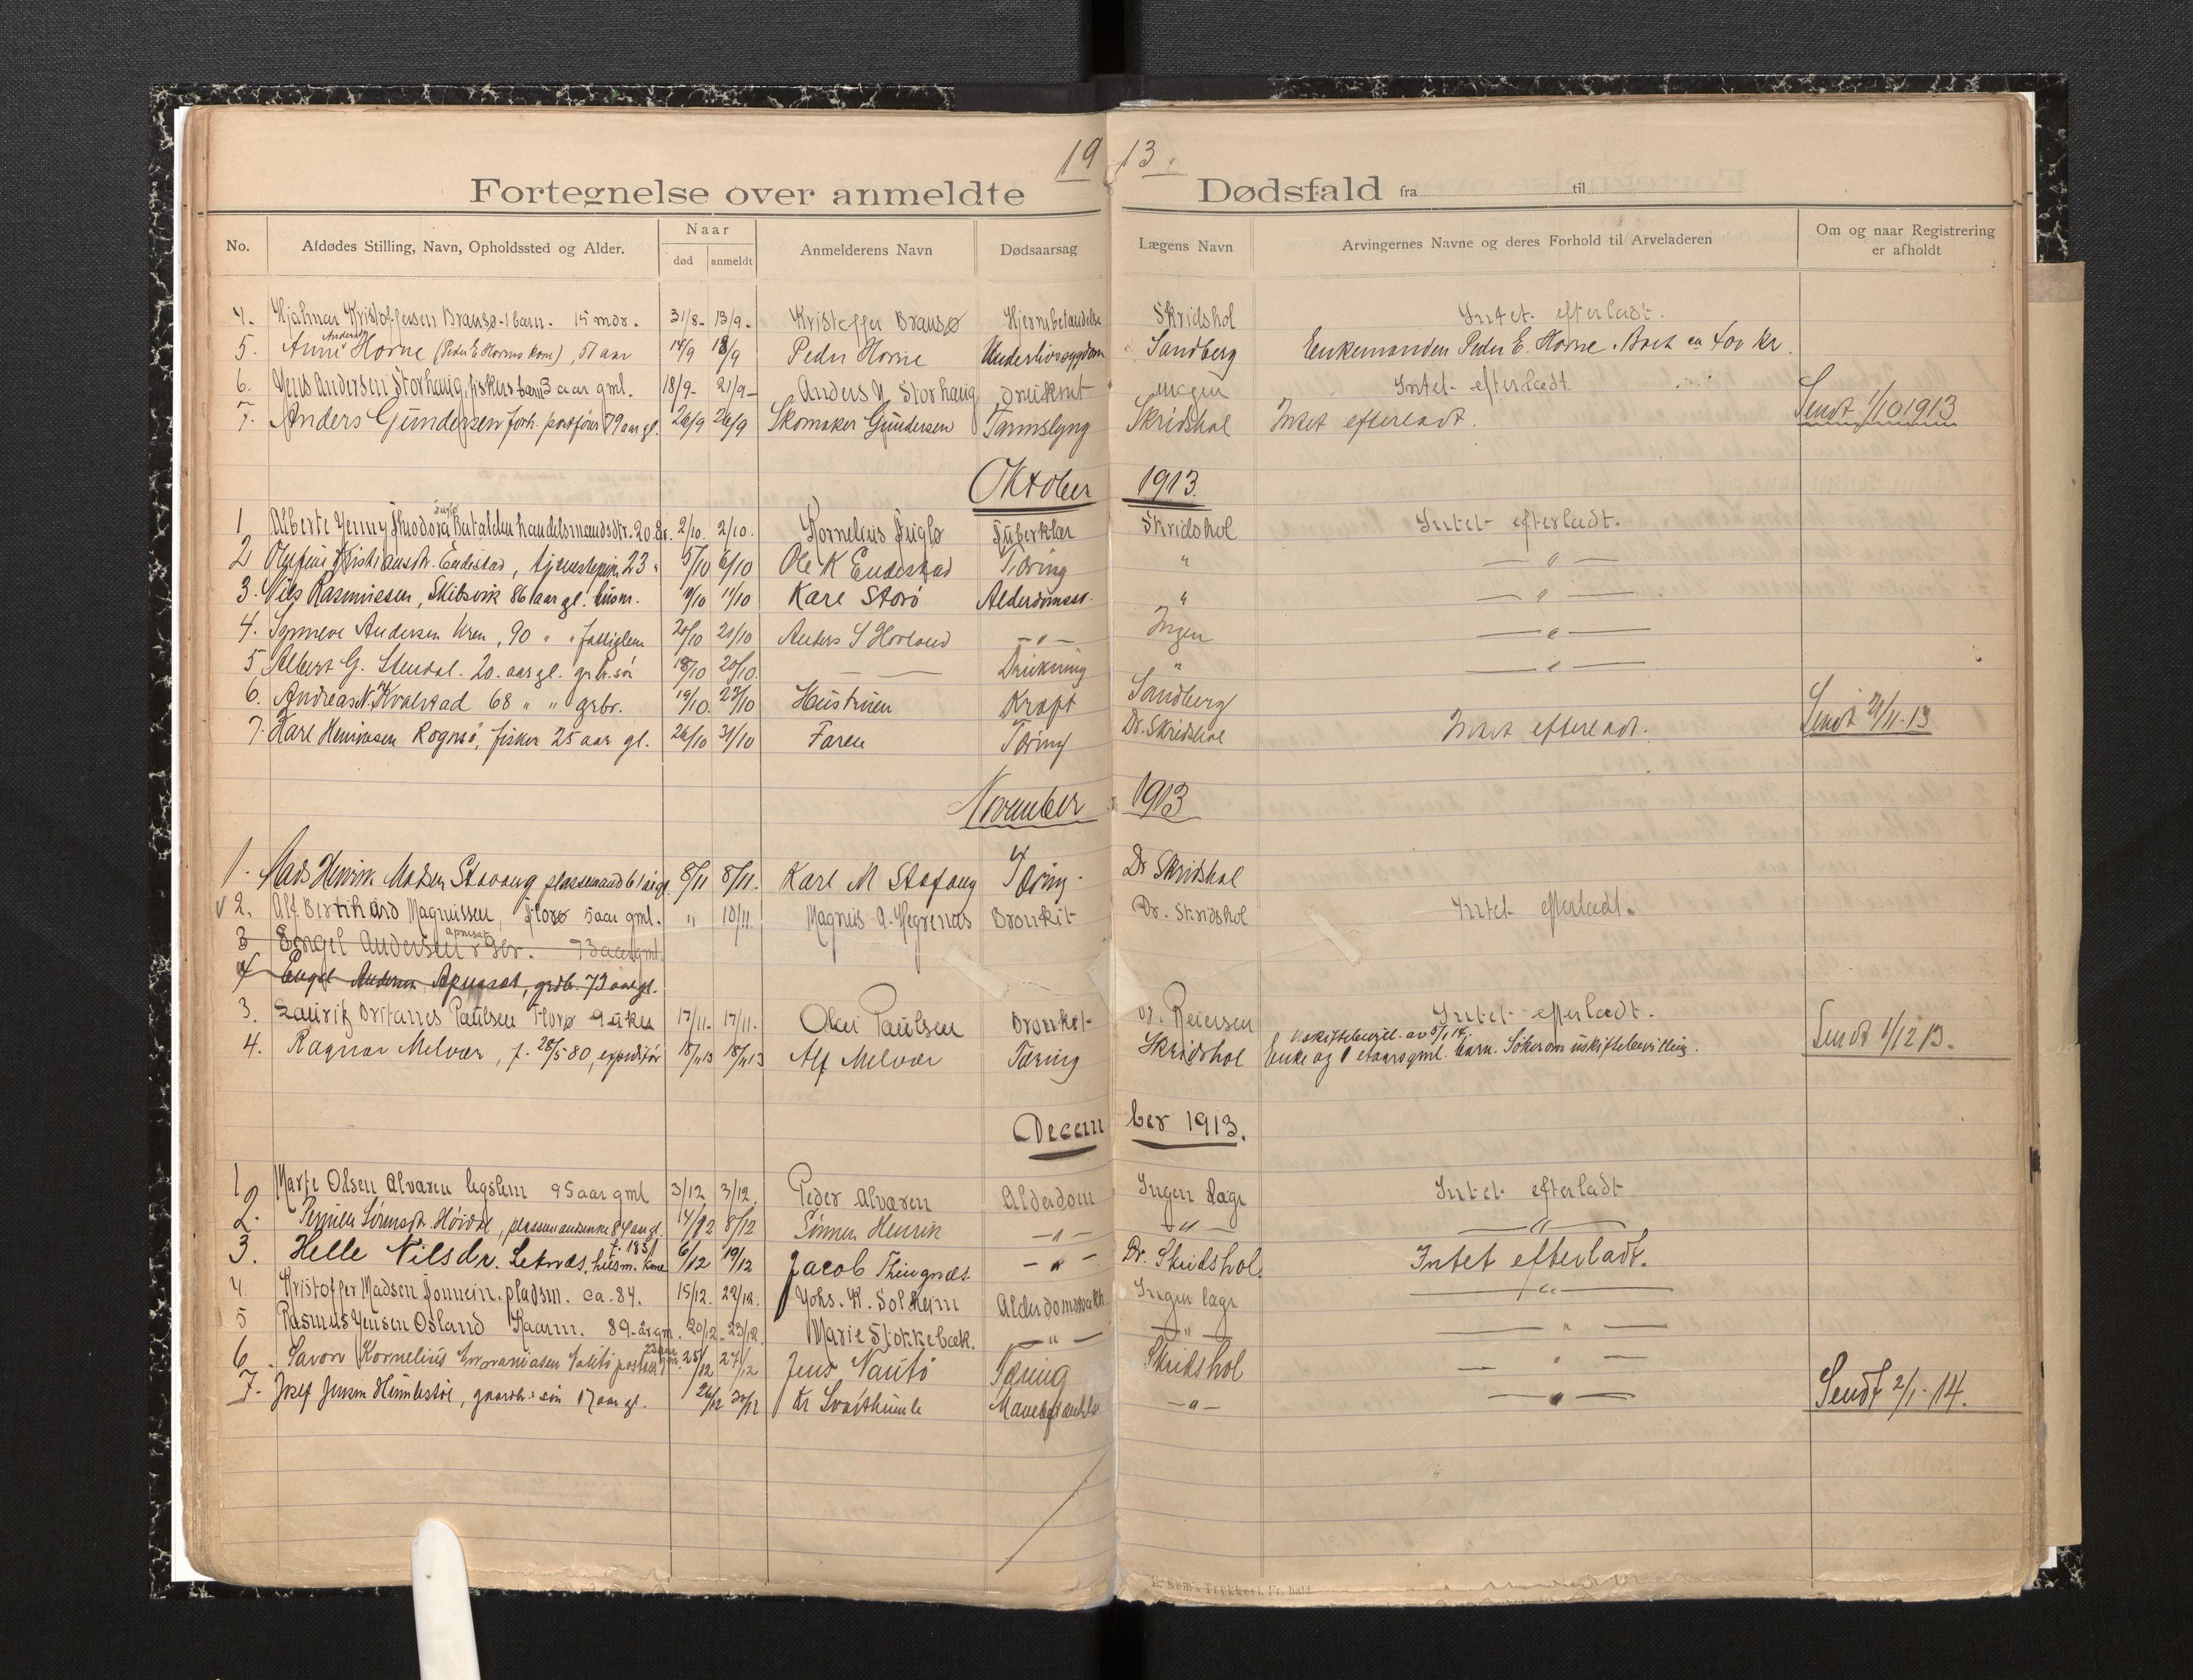 19 13.
Fortegnelse over anmeldte Dødsfald fra til
No. Afdødes Stilling, Navn, Opholdssted og Alder. Naar død anmeldt Anmelderens Navn Dødsaarsag Lægens Navn Arvingernes Navne og deres Forhold til Arveladeren Om og naar Registrering er afholdt
4. Hjalmar Kristoffersen Bransø 1 barn. 15 mdr. 31/8- 13/9- Kristoffer Bransø Hjernebetændelse Skridshol Intet efterladt.
5. Anne Andersd. Horne (Peder E Hornes kone), 51 aar 14/9 18/9 Peder Horne Underlivssygdom Sandberg Enkemanden Peder E. Horne. Boet ca 400 kr.
6. Jens Andersen Storhaug, fiskers barn 3 aar gml. 18/9- 21/9- Anders N Storhaug druknet ingen Intet efterladt
7. Anders Gundersen forh. postfører 79 aar gl. 26/9 26/9 Skomaker Gundersen Tarmslyng Skridshol Intet efterladt. Sendt 1/10 1913
Oktober 1913.
1 Alberte Jenny Theodora Fuglø Batalden handelsmandsdtr. 20 år. 2/10. 2/10. Kornelius Fuglø Tuberkler Skridshol Intet efterladt.
2 Kristiansdtr. Endestad, 23 " 5/10 6/10 Ole K Endestad Tæring " — " —
3. Nils Rasmussen, Skibsvik 86 aar gl. husm. 9/10 11/10 Karl Storø Alderdomss. " — " —
4. Synneve Andersen Kren, 90 " " fattiglem 20/10 20/10 Anders S Hovland — " — Ingen — " —
5 Albert G. Stendal. 20 aar gl. grbr.søn 18/10 20/10. — Drukning " — " —
6. Andreas N. Kvalstad 68 " " grbr. 19/10. 23/10 Hustruen Kræft Sandberg
7. Karl Henriksen Rognsö, fisker 25 aar gl. 26/10 31/10 Faren Tæring Dr. Skridshol Intet efterladt. Sendt 3/11-13
November 1913
1. Mads Henrik Madsen Stavang plassemand 61 aar gl. 8/11 8/11. Karl M Stafang Tæring. Dr Skridshol
√ 2. Alf Bernhard Magnussen, Florø 5 aar gml. " 10/11 Magnus A. Hegrenæs Bronkit Dr. Skridshol Intet efterladt.
3 Engel Andersen Apnesæt Gbr. 73 aar gml.
4 Engel Andersen Apnesæt, grdb. 73 aar gl.
3. Lauritz Paulsen Florø 9 uker 17/11. 17/11. Olai Paulsen Bronkit Dr. Reiersen Intet efterladt.
4. Ragnar Melvær, f. 28/5 80, expeditør 18/11 13 18/11 13 Alf Melvær Tæring Skridshol Uskiftebevil. av 5/1 14. Enke og 1 etaarsgml. barn. Söker om uskiftebevilling. Sendt 1/12 13.
December 1913.
1 Marte Olsen Alvaren legslem 95 aar gml 3/12 3/12. Peder Alvaren Alderdom Ingen læge Intet efterladt
2. Pernille Sørensdtr. Høidal, plassemandsenke 84 aar gl. 4/12 8/12 Sönnen Henrik — " — — " — — " —
3. Helle Nilsdr. Seknæs, husm. kone f. 1831 6/12 19/12 Jacob Thingnæs — " — Dr. Skridshol. Intet efterladt.
4. Kristoffer Madsen pladsm. ca. 84. 15/12. 22/12. Johs. K. Solheim Alderdomssvækk. Ingen læge — " —
5 Rasmus Jensen Osland Kaarm. 89-år gm. 20/12. 23/12. Marie Stokkebæk. — " — — " — — " —
6. Kornelius 23 aar gml. 25/12 27/12 Jens Nautø Tæring Skridshol — " —
7. Josef Jensen gaardbr. søn 17 aar gl. 26/12 30/12 Kr Svarthumle Mavebetændelse — " — — " — Sendt 2/1-14.
E. Sem's Trykkeri, Fr. hald.